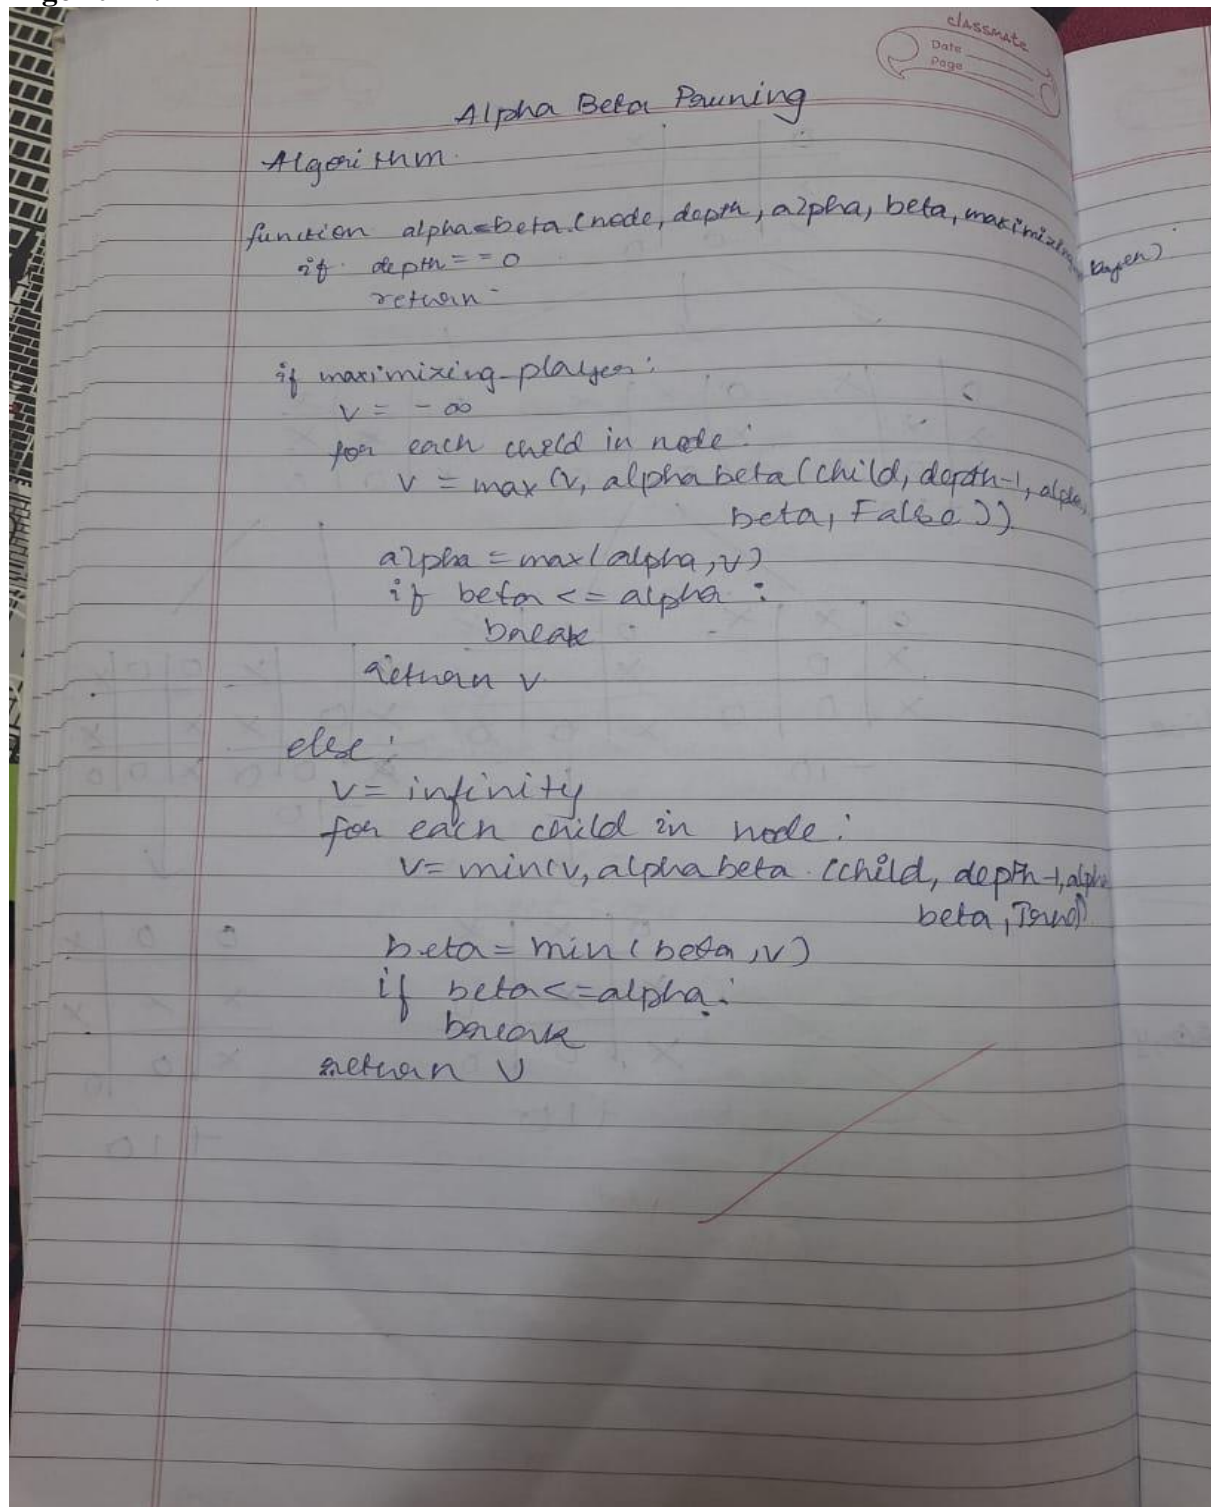 classmate
Date
Page
Alpha Beta Pruning
Algorithm
function alpha-beta (node, depth, alpha, beta, maximizing player)
if depth == 0
return
if maximixing-player:
v = - ∞
for each child in node:
v = max(v, alpha beta (child, depth-1, alpha,
beta, False))
alpha = max(alpha, v)
if beta <= alpha :
break
return v
else:
v = infinity
for each child in node:
v = min(v, alpha beta (child, depth-1, alpha
beta, True))
beta = min(beta, v)
if beta <= alpha:
break
return v